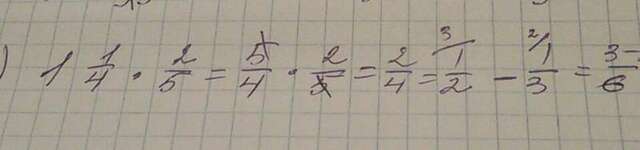 ) 1 1/4 · 2/5 = 5/4 · 2/5 = 2/4 = 1/2 - 1/3 = 3-/6